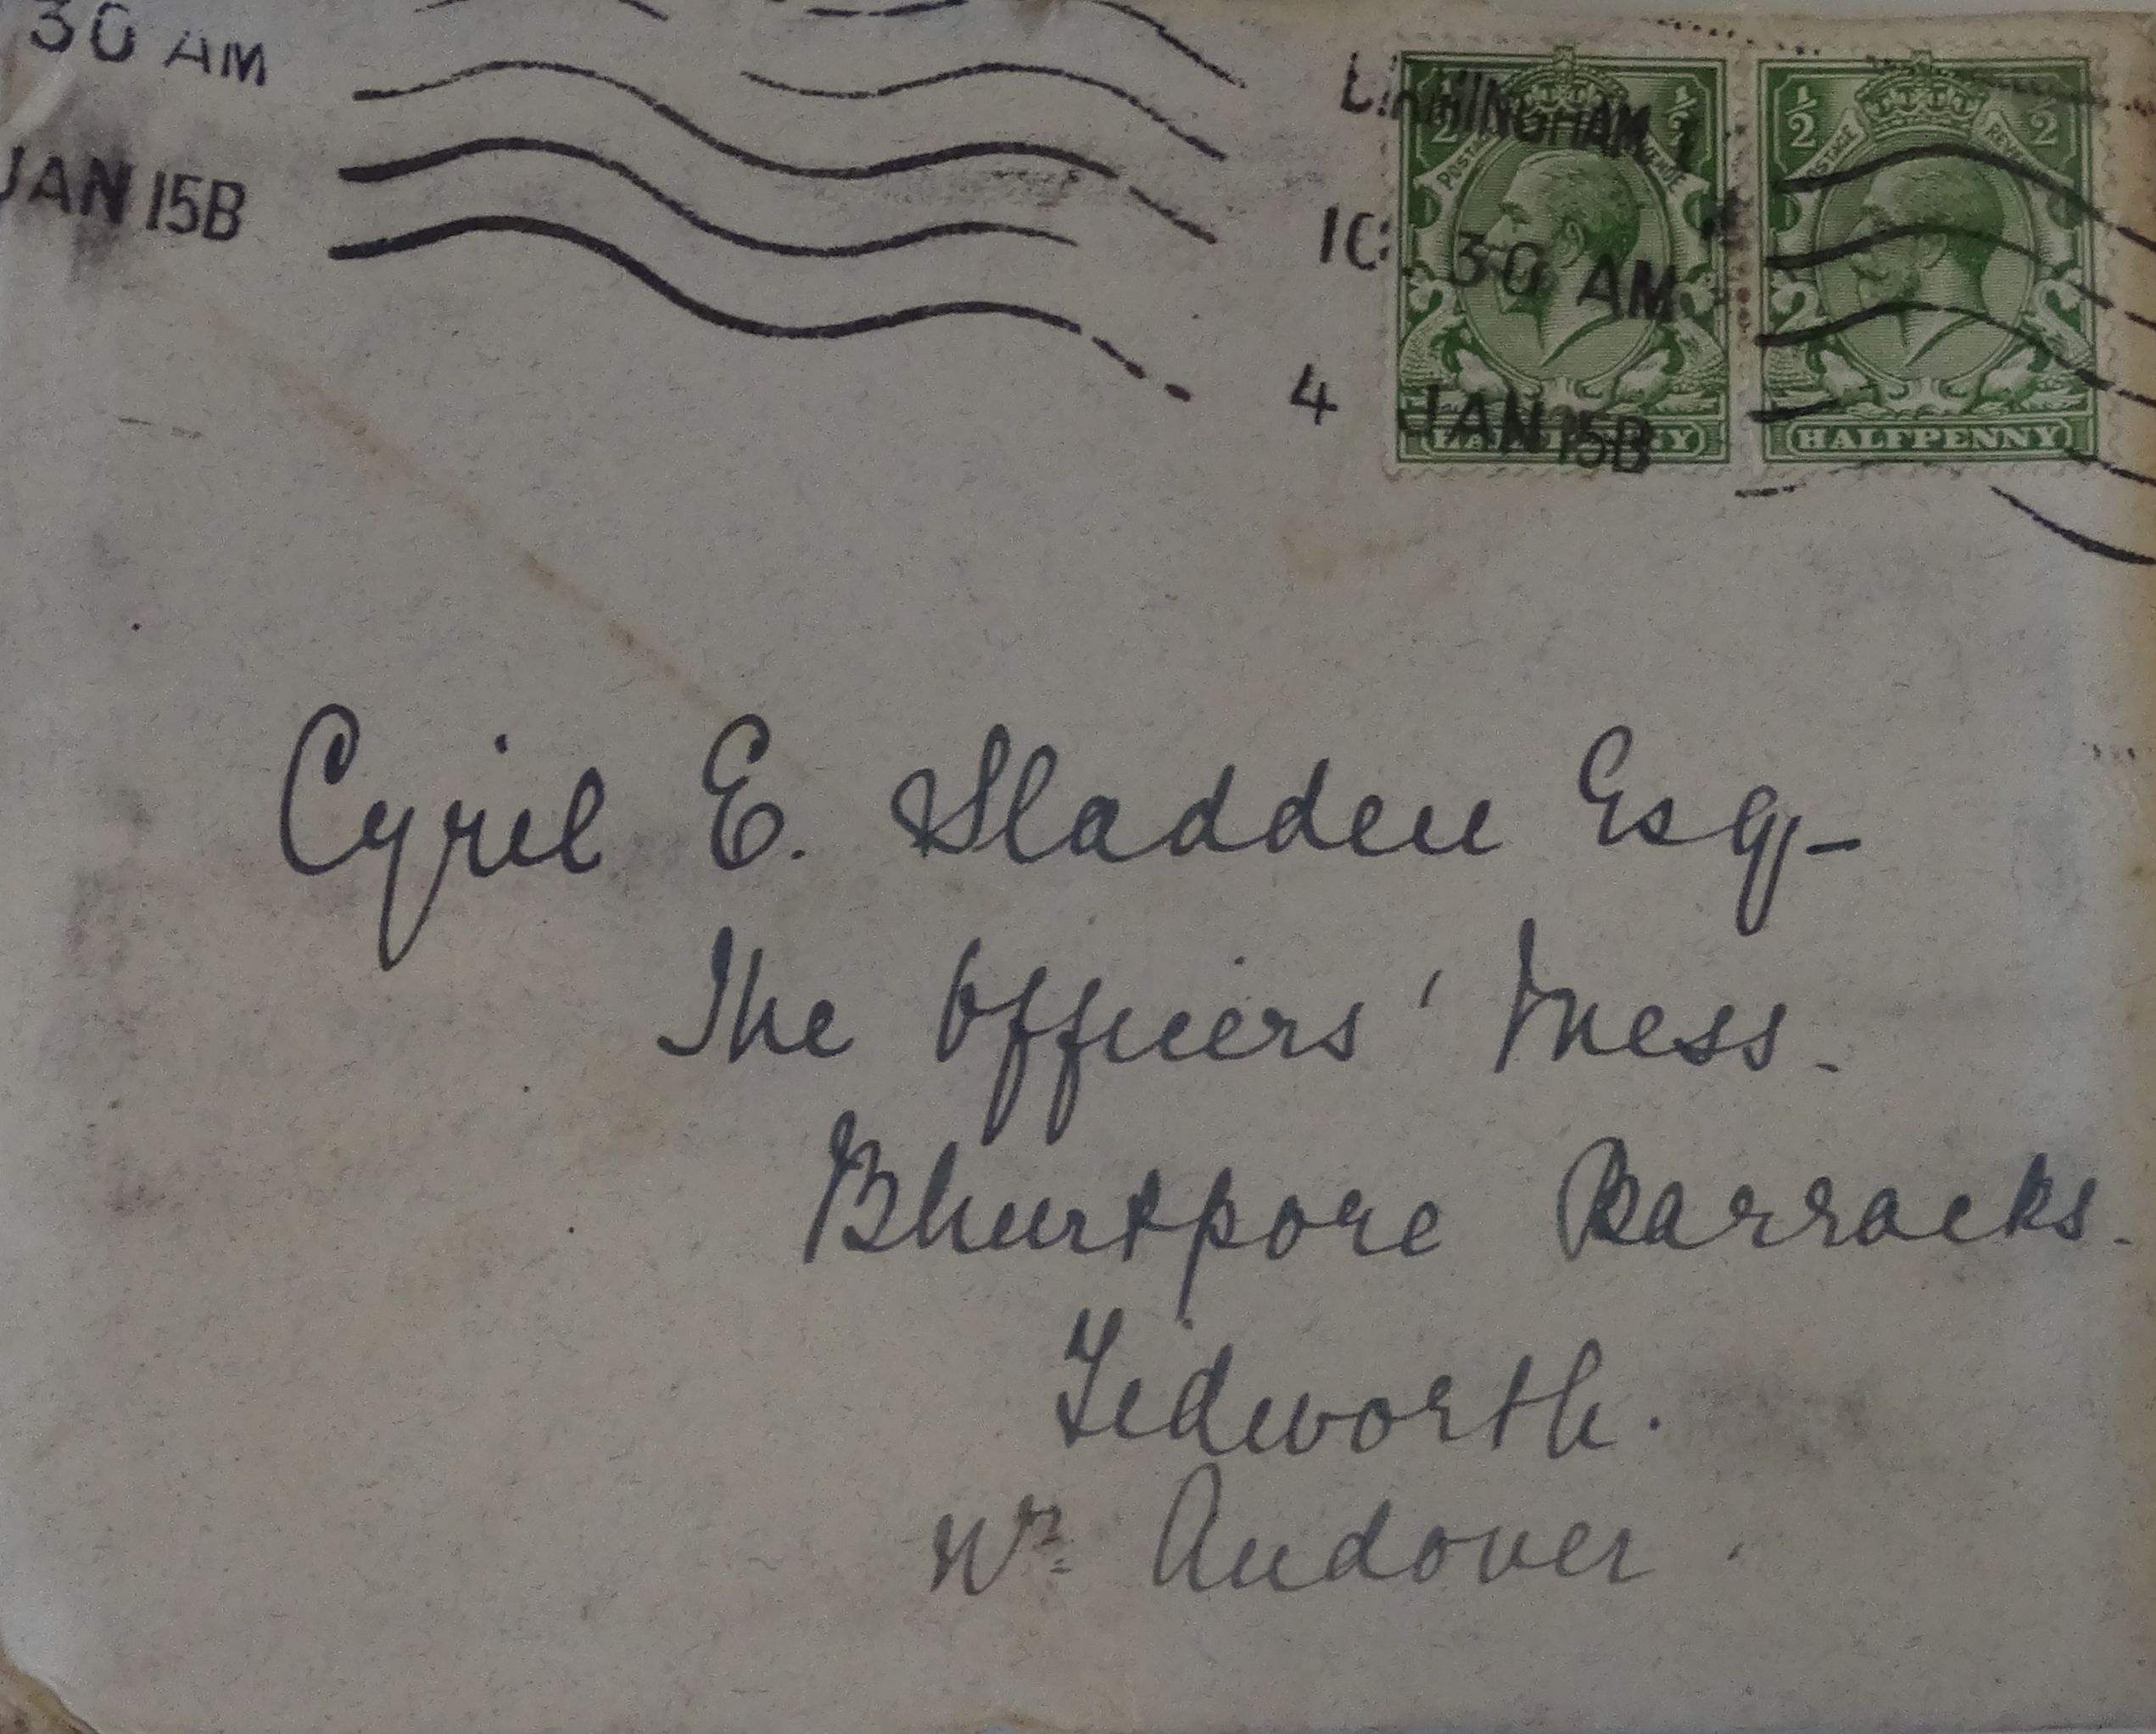 30 AM
JAN 15B
BIRMINGHAM. 1
10: 30 AM
4 JAN 15B
1/2 1/2
POSTAGE REVENUE
HALFPENNY
1/2 1/2
POSTAGE REVENUE
HALFPENNY
Cyril E. Sladden Esq-
The Officers' Mess.
Bhurtpore Barracks.
Tidworth.
Nr. Andover.